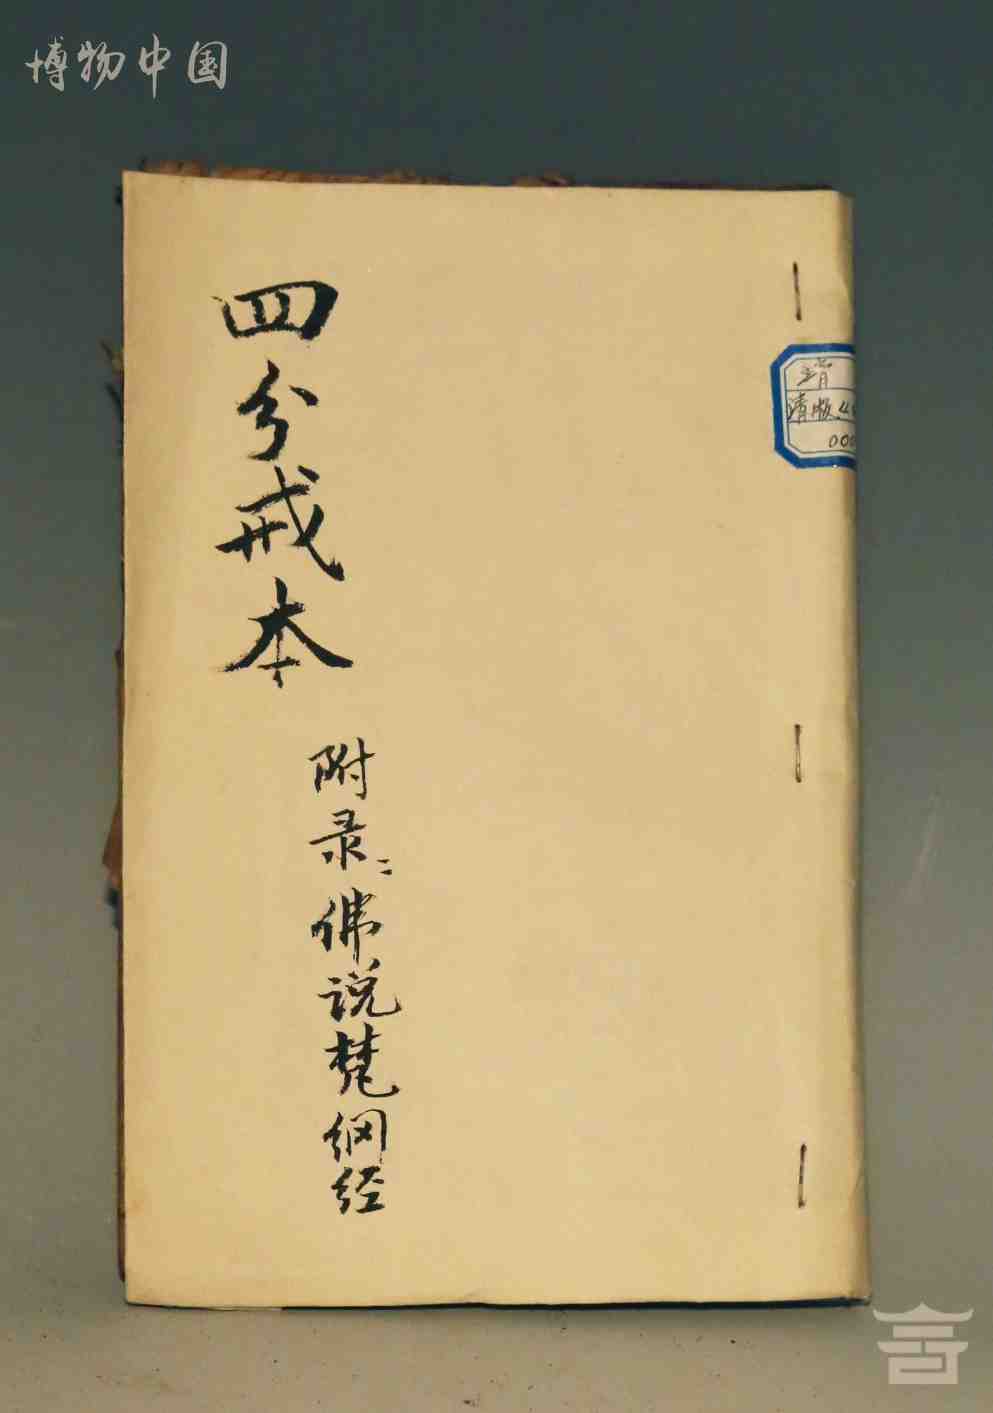 博物中国
四分戒本
附录：佛说梵纲经
清版
000